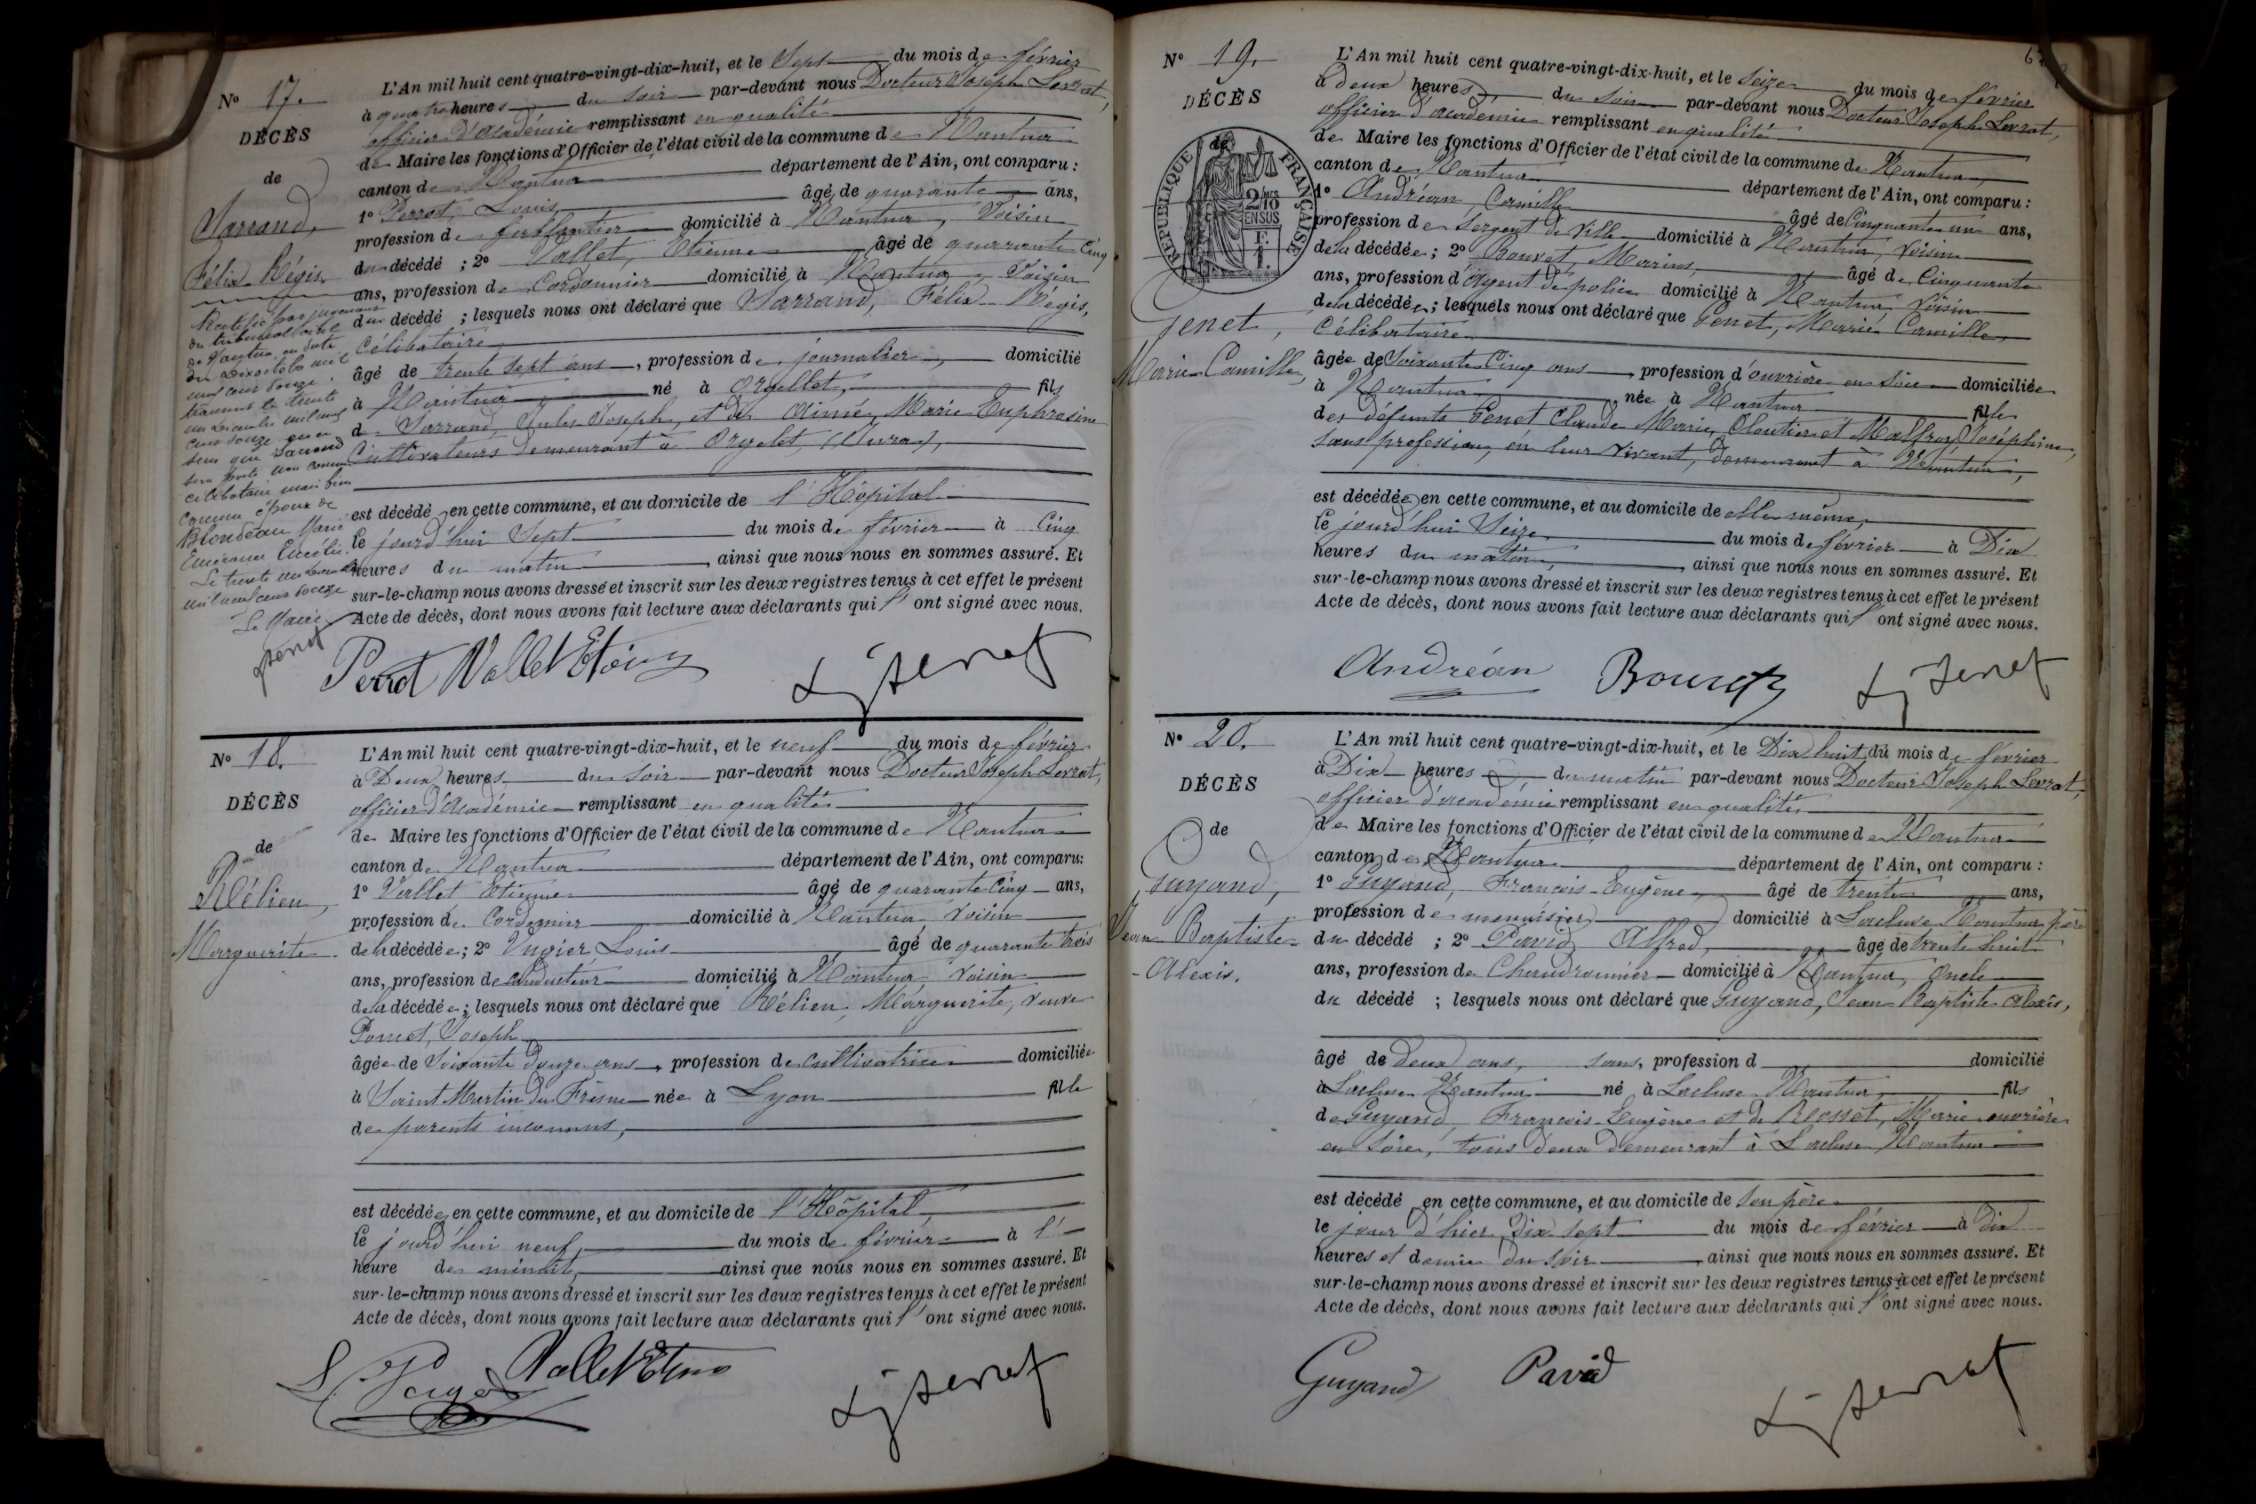 N° 17.
DÉCÈS
de
Sarrand,
Félix Régis
Rectifié par jugement
du tribunal civil
de Nantua en date
du dix octobre mil
neuf cent douze
transcrit le trente
un décembre mil neuf
cent douze en ce
sens que Sarrand
sera porté non comme
célibataire mais bien
comme époux de
Blondeau Marie
Le trente un décembre
mil neuf cent douze
Le Maire
L'An mil huit cent quatre-vingt-dix-huit, et le Sept du mois de février
à quatre heures du soir par-devant nous Docteur Joseph Levrat,
officier d'académie remplissant en qualité
de Maire les fonctions d'Officier de l'état civil de la commune de Nantua
canton de Nantua département de l'Ain, ont comparu :
1° Perrot, Louis, âgé de quarante ans,
profession de ferblantier domicilié à Nantua, Voisin
du décédé ; 2° Vallet, Etienne âgé de quarante Cinq
ans, profession de Cordonnier domicilié à Nantua, Voisin
du décédé ; lesquels nous ont déclaré que Sarrand, Félix Régis,
Célibataire
âgé de trente sept ans, profession de journalier, domicilié
à Nantua né à Orgellet, fils
de Sarrand, Jules Joseph, et de Aimée, Marie Euphrasine
Cultivateurs demeurant à Orgelet (Jura),
est décédé en cette commune, et au domicile de l'Hôpital
le jourd'hui Sept du mois de février à Cinq
heures du matin ainsi que nous nous en sommes assuré. Et
sur-le-champ nous avons dressé et inscrit sur les deux registres tenus à cet effet le présent
Acte de décès, dont nous avons fait lecture aux déclarants qui l'ont signé avec nous.
Perrot Vallet Etienne Levrat
N° 18.
DÉCÈS
de
Rélieu,
Marguerite
L'An mil huit cent quatre-vingt-dix-huit, et le neuf du mois de février
à Deux heures du soir par-devant nous Docteur Joseph Levrat,
officier d'Académie remplissant en qualité
de Maire les fonctions d'Officier de l'état civil de la commune de Nantua
canton de Nantua département de l'Ain, ont comparu :
1° Vallet Etienne âgé de quarante Cinq ans,
profession de Cordonnier domicilié à Nantua, voisin
de la décédée ; 2° Louis âgé de quarante trois
ans, profession de Conducteur domicilié à Nantua, voisin
de la décédée ; lesquels nous ont déclaré que Rélieu, Marguerite, veuve
Joseph
âgée de Soixante douze ans, profession de cultivatrice domiciliée
à Saint Martin du Frêsne née à Lyon fille
de parents inconnus,
est décédée en cette commune, et au domicile de l'Hôpital
le jourd'hui neuf, du mois de février à l'
heure de minuit, ainsi que nous nous en sommes assuré. Et
sur-le-champ nous avons dressé et inscrit sur les deux registres tenus à cet effet le présent
Acte de décès, dont nous avons fait lecture aux déclarants qui l'ont signé avec nous.
Vallet Etienne Levrat
N° 19.
DÉCÈS
de
RÉPUBLIQUE FRANÇAISE
2/10 EN SUS
F.
1.
Genet,
Marie Camille,
L'An mil huit cent quatre-vingt-dix-huit, et le Seize du mois de février
à deux heures du soir par-devant nous Docteur Joseph Levrat,
officier d'académie remplissant en qualité
de Maire les fonctions d'Officier de l'état civil de la commune de Nantua,
canton de Nantua département de l'Ain, ont comparu :
1° Andréan, Camille âgé de Cinquante un ans,
profession de Sergent de Ville domicilié à Nantua, voisin
de la décédée ; 2° Bouvet, Marius, âgé de Cinquante
ans, profession d'agent de police domicilié à Nantua, Voisin
de la décédée ; lesquels nous ont déclaré que Genet, Marie Camille,
Célibataire
âgée de Soixante Cinq ans, profession d'ouvrière en soie domiciliée
à Nantua née à Nantua fille
des défunts Genet Claude Marie, Cloutier et Malfroy Joséphine,
sans profession, en leur vivant, demeurant à Nantua,
est décédée en cette commune, et au domicile de elle même,
le jourd'hui Seize du mois de février à Dix
heures du matin, ainsi que nous nous en sommes assuré. Et
sur-le-champ nous avons dressé et inscrit sur les deux registres tenus à cet effet le présent
Acte de décès, dont nous avons fait lecture aux déclarants qui l'ont signé avec nous.
Andréan Bouvet Levrat
N° 20.
DÉCÈS
de
Guyand,
Jean Baptiste
Alexis.
L'An mil huit cent quatre-vingt-dix-huit, et le Dix huit du mois de février
à Dix heures du matin par-devant nous Docteur Joseph Levrat,
officier d'académie remplissant en qualité
de Maire les fonctions d'Officier de l'état civil de la commune de Nantua
canton de Nantua département de l'Ain, ont comparu :
1° Guyand, François Eugène, âgé de trente ans,
profession de menuisier domicilié à Lacluse Nantua père
du décédé ; 2° David Alfred, âgé de trente huit
ans, profession de Chaudronnier domicilié à Nantua, oncle
du décédé ; lesquels nous ont déclaré que Guyand, Jean Baptiste Alexis,
âgé de deux ans, sans profession d domicilié
à Lacluse Nantua né à Lacluse Nantua, fils
de Guyand, François Eugène et de Marie ouvrière
en soie, tous deux demeurant à Lacluse Nantua
est décédé en cette commune, et au domicile de son père
le jour d'hier Dix sept du mois de février à Dix
heures et demie du soir ainsi que nous nous en sommes assuré. Et
sur-le-champ nous avons dressé et inscrit sur les deux registres tenus à cet effet le présent
Acte de décès, dont nous avons fait lecture aux déclarants qui l'ont signé avec nous.
Guyand David Levrat